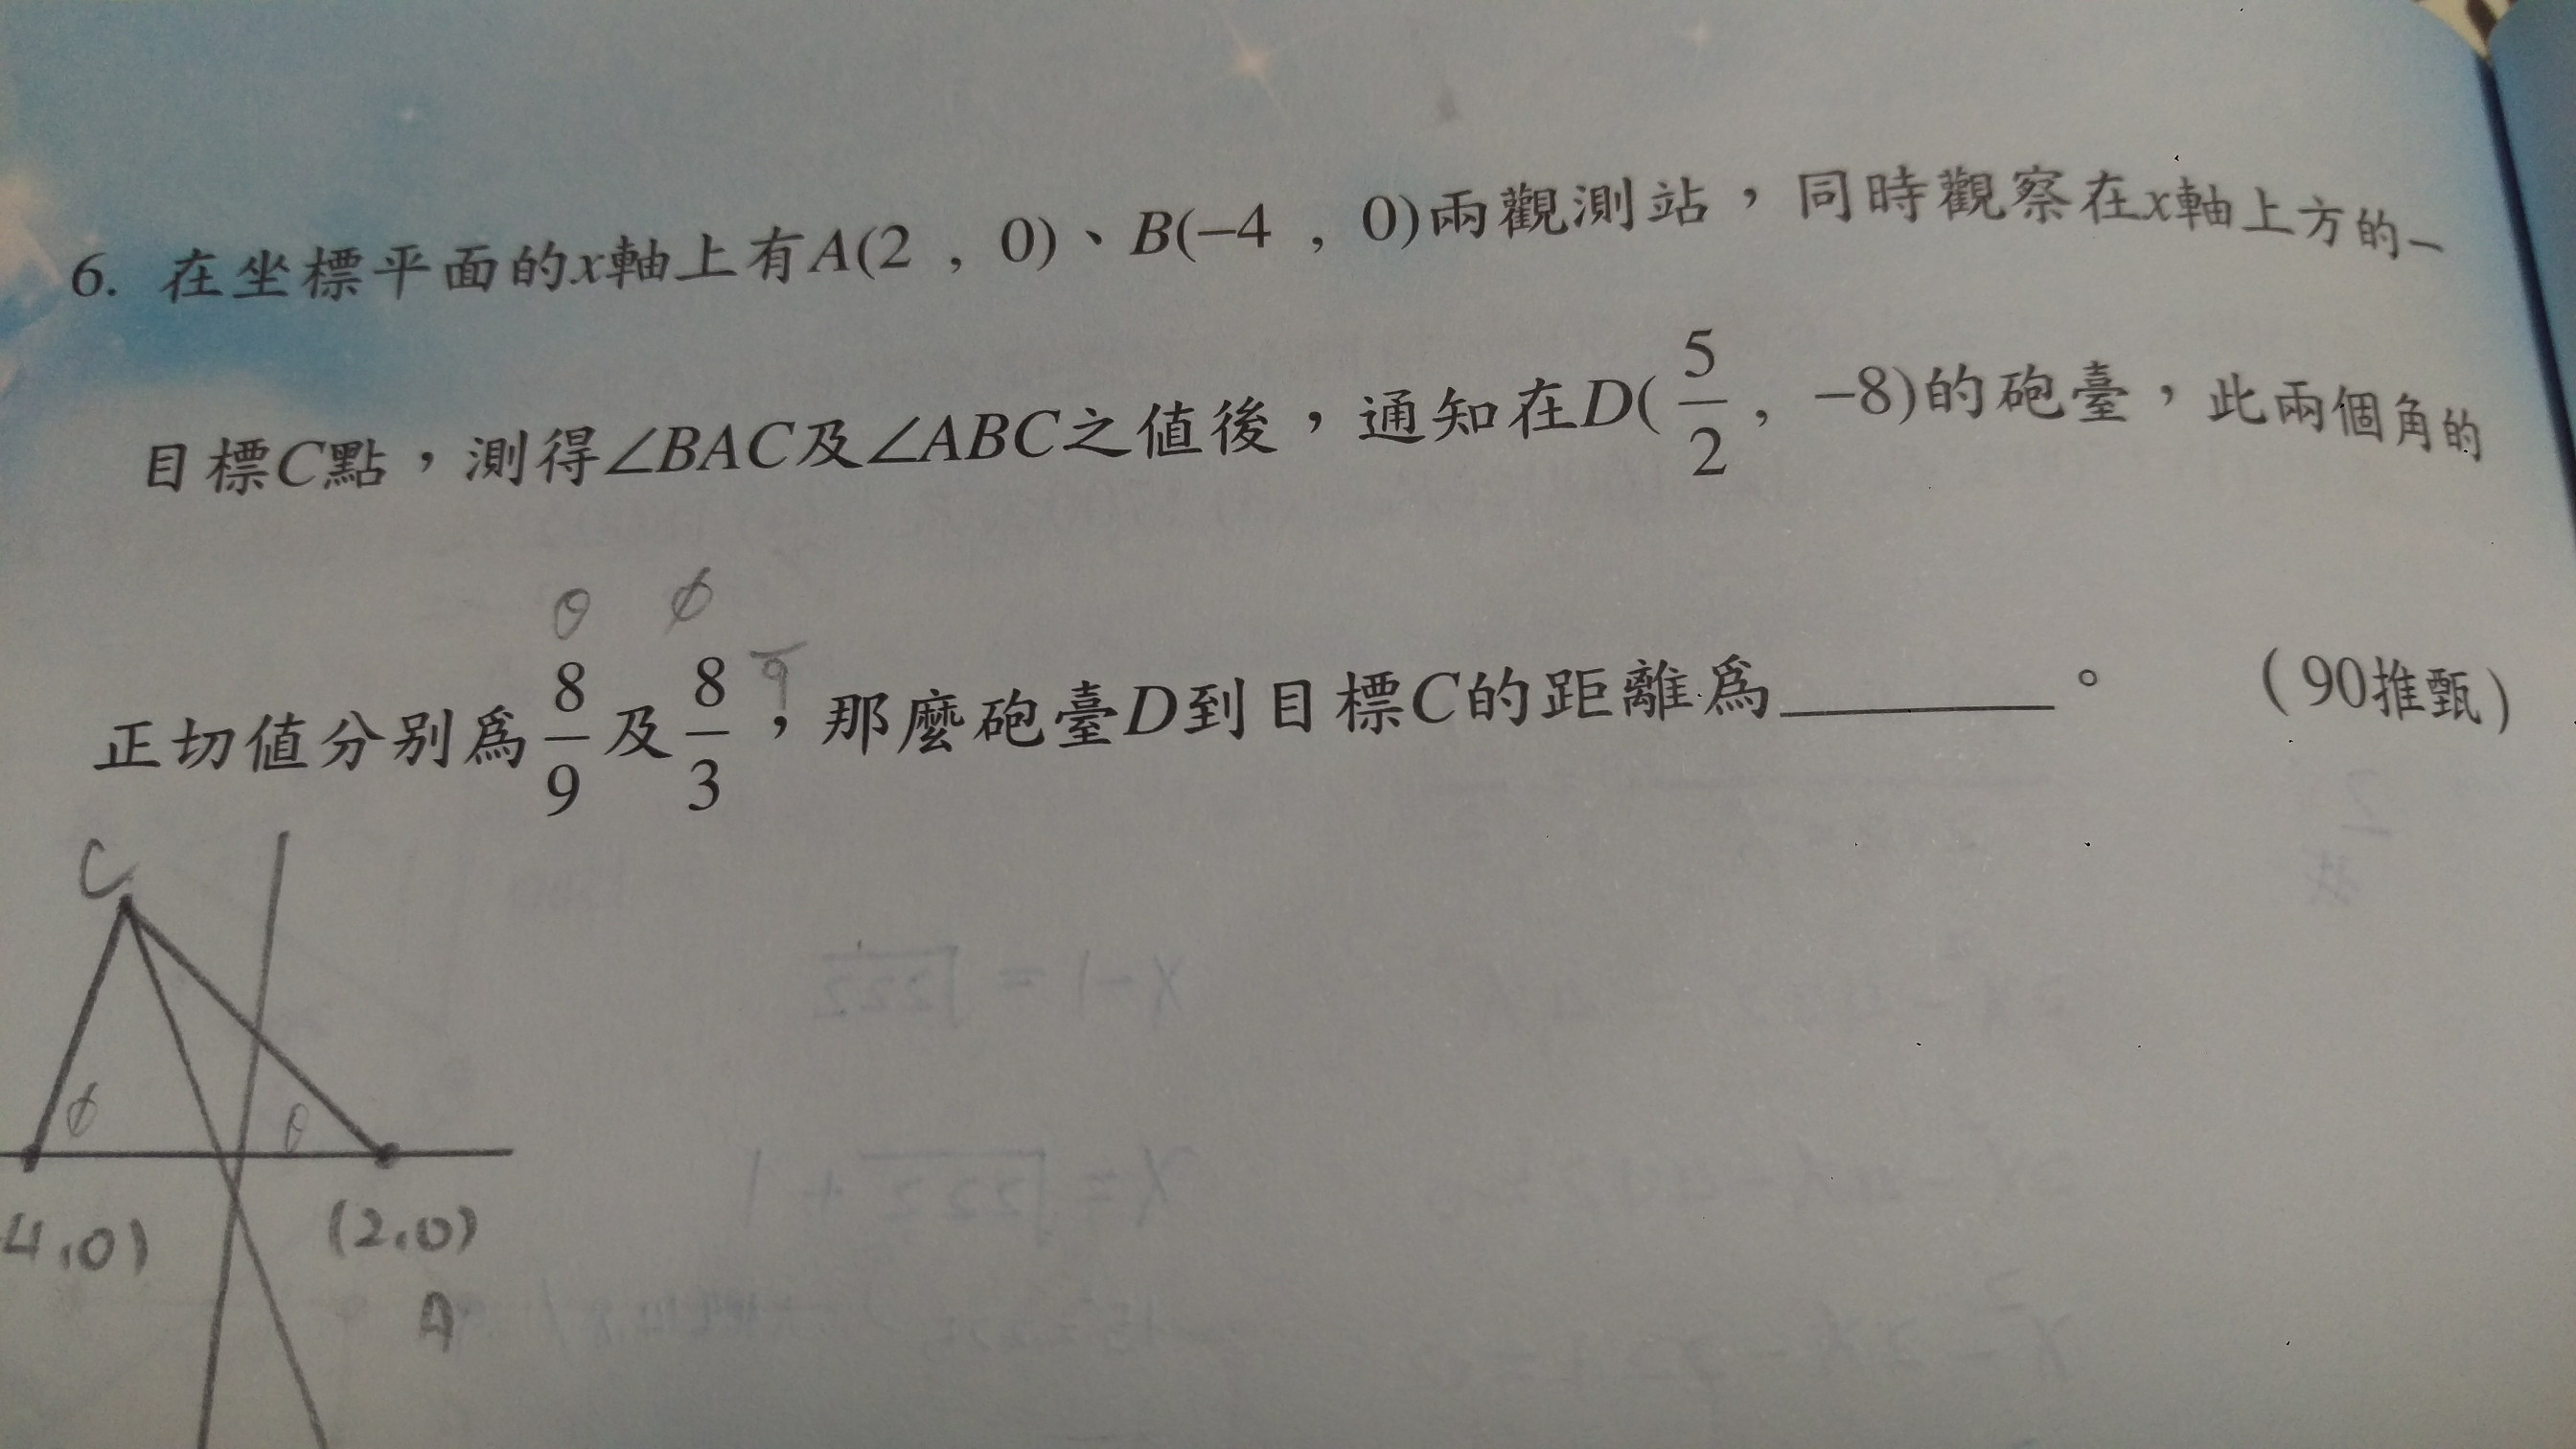 6. 在坐標平面的x軸上有A(2 , 0)、B(−4 , 0)兩觀測站，同時觀察在x軸上方的一
目標C點，測得∠BAC及∠ABC之值後，通知在D(5/2 , −8)的砲臺，此兩個角的
θ φ
正切值分別為8/9及8/3，那麼砲臺D到目標C的距離為______。 (90推甄)
C
φ θ
4,0) (2,0)
A